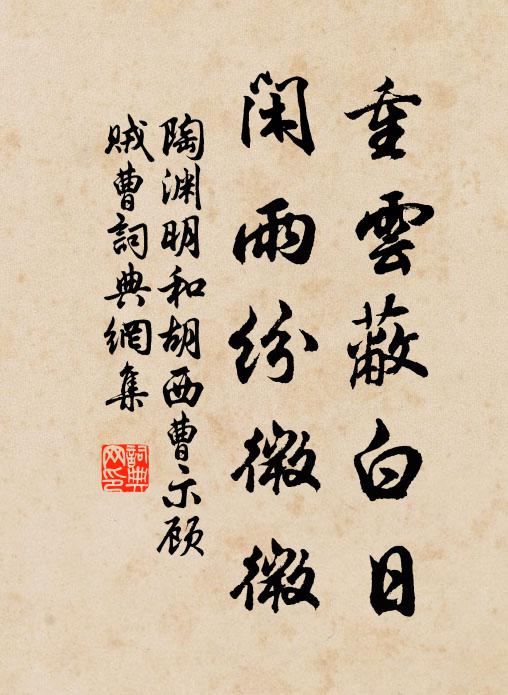 重雲蔽白日
閑雨紛微微
陶渊明和胡西曹示顾
贼曹詞典網集
詞典网印